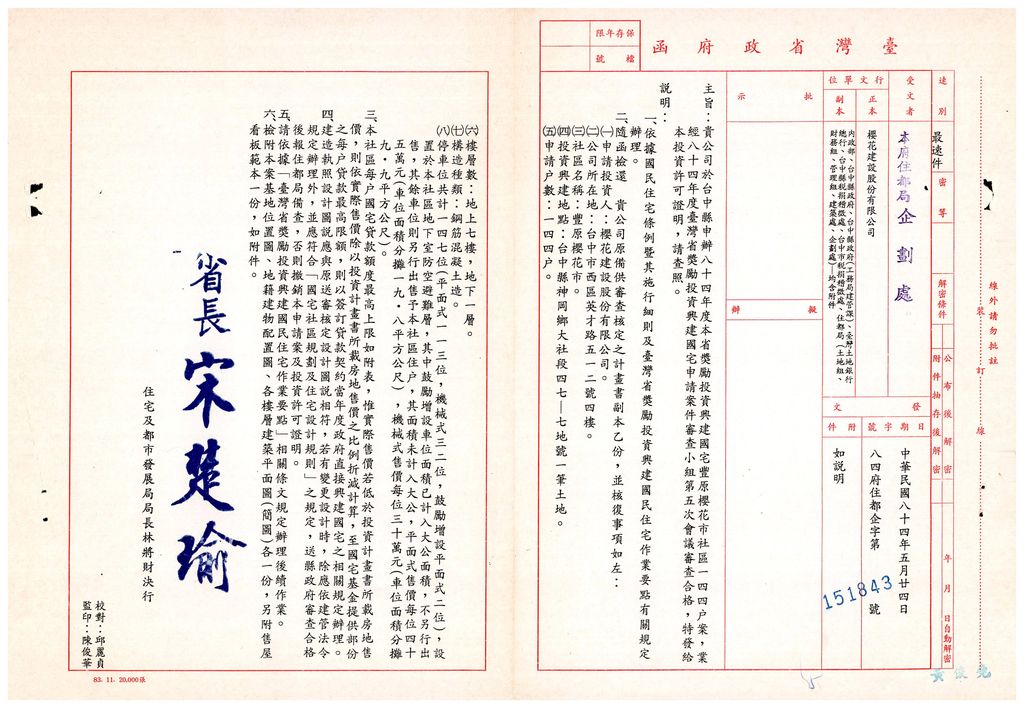 臺灣省政府函
保存年限
檔號
速別
最速件
密等
解密條件
公布後解密
附件抽存後解密
年月日自動解密
受文者
本府住都局企劃處
行文單位
正本
櫻花建設股份有限公司
副本
內政部、台中縣政府、台中縣政府(工務局建管課)、臺灣土地銀行
總行、台中縣稅捐稽徵處、台中市稅捐稽徵處、住都局(土地組、
財務組、管理組、建築處、企劃處)—均含附件
發文
日期
中華民國八十四年五月廿四日
字號
八四府住都企字第151843號
附件
如說明
批示
擬辦
主旨：貴公司於台中縣申辦八十四年度本省獎勵投資興建國宅豐原櫻花市社區一四四户案，業
經八十四年度臺灣省獎勵投資興建國宅申請案件審查小組第五次會議審查合格，特發給
本投資許可證明，請查照。
說明：
一、依據國民住宅條例暨其施行細則及臺灣省獎勵投資興建國民住宅作業要點有關規定
辦理。
二、隨函檢還　貴公司原備供審查核定之計畫書副本乙份，並核復事項如左：
㈠申請投資人：櫻花建設股份有限公司。
㈡公司所在地：台中市西區英才路五一二號四樓。
㈢社區名稱：豐原櫻花市。
㈣投資興建地點：台中縣神岡鄉大社段四七—七地號一筆土地。
㈤申請户數：一四四户。
㈥樓層數：地上七樓，地下一層。
㈦構造種類：鋼筋混凝土造。
㈧停車位共計一四七位(平面式一一三位，機械式三二位，鼓勵增設平面式二位)，設
置於本社區地下室防空避難層，其中鼓勵增設車位面積已計入大公面積，不另行出
售，其餘車位則另行出售予本社區住户，其面積未計入大公，平面式售價每位四十
五萬元(車位面積分攤一九·八平方公尺)，機械式售價每位三十萬元(車位面積分攤
九·九平方公尺)。
三、本社區每户國宅貸款額度最高上限如附表，惟實際售價若低於投資計畫書所載房地售
價，則依實際售價除以投資計畫書所載房地售價之比例折減計算，至國宅基金提供部份
之每户貸款最高限額，則以簽訂貸款契約當年度政府直接興建國宅之相關規定辦理。
四、建造執照設計圖說應與原送審核定設計圖說相符，若有變更設計時，除應依建管法令
規定辦理外，並應符合「國宅社區規劃及住宅設計規則」之規定，送縣政府審查合格
後報住都局備查，否則撤銷本申請案及投資許可證明。
五、請依據「臺灣省獎勵投資興建國民住宅作業要點」相關條文規定辦理後續作業。
六、檢附本案基地位置圖、地籍建物配置圖、各樓層建築平面圖(簡圖)各一份，另附售屋
看板範本一份，如附件。
省長 宋楚瑜
住宅及都市發展局局長林將財決行
校對：邱麗貞
監印：陳俊華
線外請勿批註
裝訂線
83. 11. 20,000張